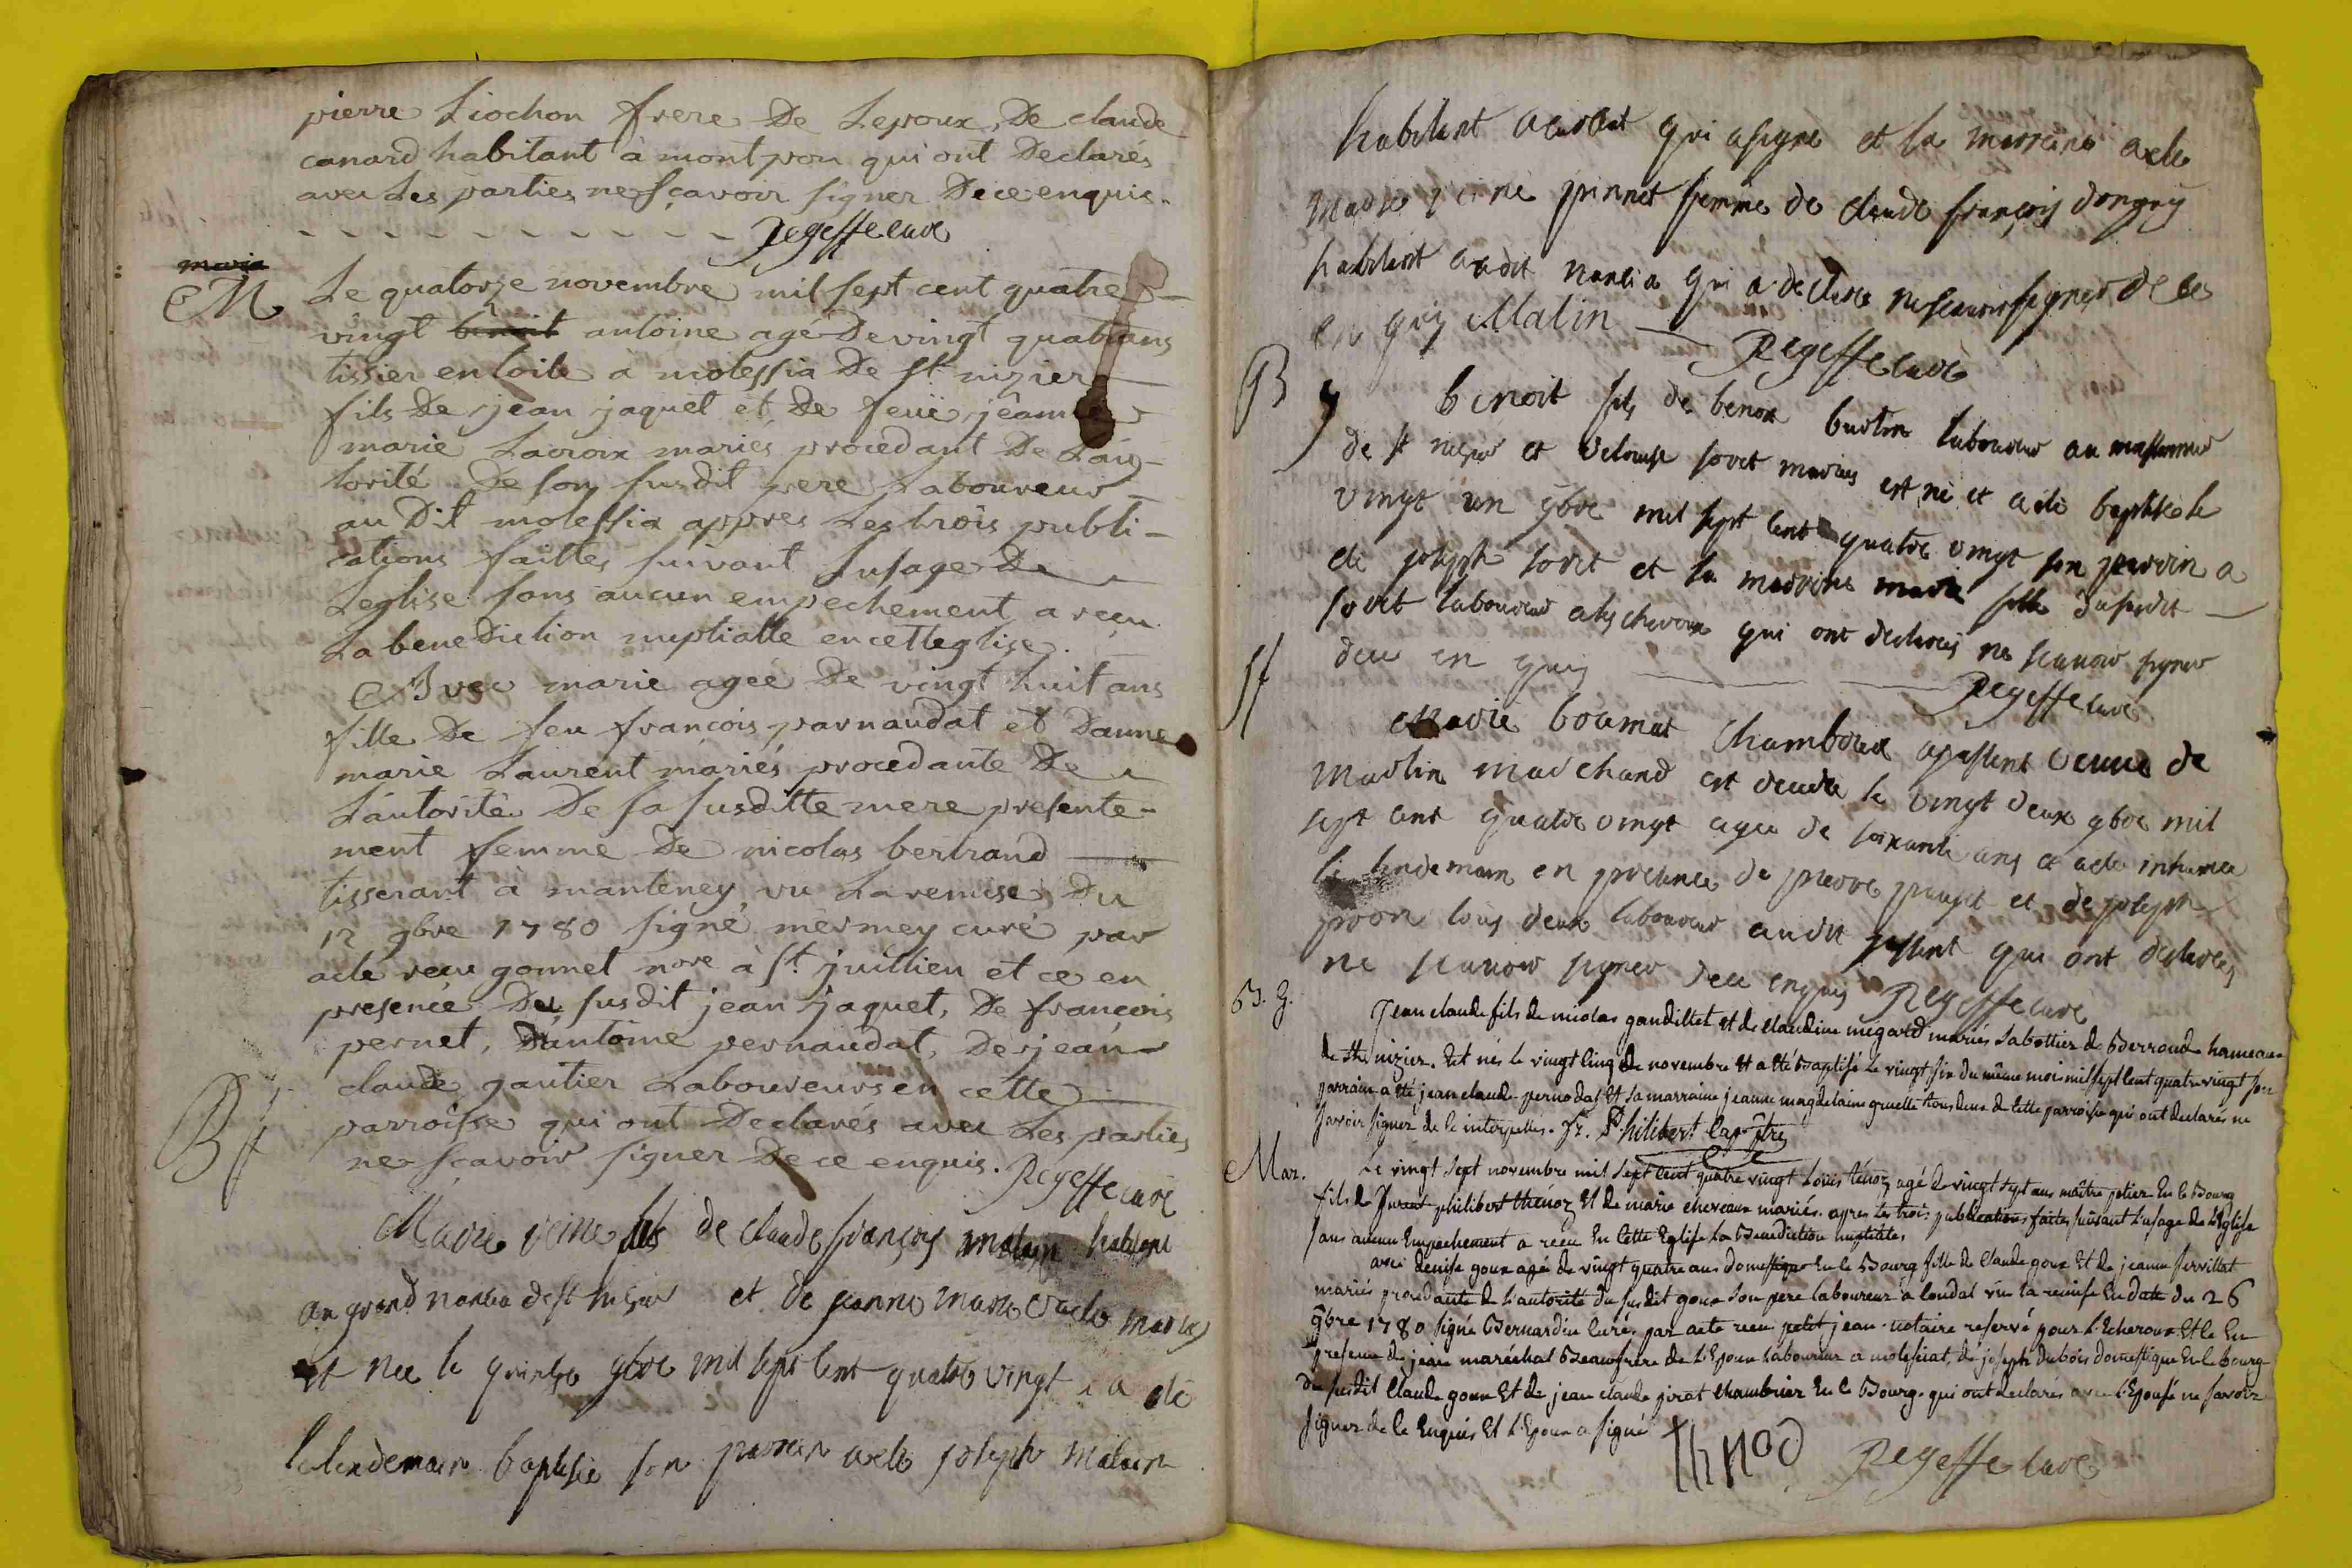 pierre Liochon frere De Lepoux, De claude
canard habitant à montpon qui ont Declarés
avec Les parties ne sçavoir signer De ce enquis.
Regeffe curé
maria
M
Le quatorze novembre mil sept cent quatre
vingt benoit antoine agé De vingt quatre ans
tissier en toile à molessia De st nizier
fils De jean jaquet et De feuë jeanne
marie Lacroix mariés procedant De L'au-
torité De son susdit pere Laboureur
au Dit molessia appres Les trois publi-
cations faittes suivant Lusage De
Leglise sans aucun empechement a reçu
La beneDiction nuptialle en cette eglise.
Avec marie agée De vingt huit ans
fille De feu françois parnaudat et Danne
marie Laurent mariés procedante De
L'autorité De sa susditte mere presente-
ment femme De nicolas bertrand
tisserant à manteney vu La remise Du
12 9bre 1780 signé mermey curé par
acte recu gonnet nore à st. juillien et ce en
presence Du susdit jean jaquet, De françois
pernet, D'antoine pernaudat, De jean
claude gautier Laboureurs en cette
parroisse qui ont Declarés avec Les parties
ne sçavoir signer De ce enquis. Regeffe curé
B
Marie reine fille de claude françois malin habitant
au grand nanlia de st nizier et de jeanne marie mariés
est nee le quinze 9bre mil sept cent quatre vingt a été
le lendemain baptisée son parrain a été joseph malin
habitant qui a signé et la marraine a été
marie reine pinnet femme de claude françois dongey
habitant audit nanlia qui a declaré ne scavoir signer de ce
en quis Malin Regeffe curé
B
benoit fils de benoit burtin laboureur au
de st nizier et sovet mariés est né et a été baptisé le
vingt un 9bre mil sept cent quatre vingt son parrin a
été joseph sovet et la marrine marie fille dususdit
sovet laboureur qui ont declarés ne scavoir signer
dece en quis Regeffe curé
St
Marie boumat veuve de
martin marchand est decedée le vingt deux 9bre mil
sept cent quatre vingt agée de soixante ans et a été inhumée
le lendemain en presence de pierre et de joseph
tous deux laboureur audit qui ont declarés
ne scavoir signer dece enquis Regeffe curé
B. G.
Jean claude fils de nicolas gandillet et de claudine megard mariés sabottier de Berroude hameau
de st nizier. Est nés le vingt cinq de novembre et a été Baptisé le vingt six du même mois mil sept cent quatre vingt son
parrain a été jean claude pernodat et sa marraine jeanne magdelaine gruelle tous deux de cette parroisse qui ont declarés ne
savoir signer de ce interpellés. Fr. Philibert Cap. ptre
Mar.
Le vingt sept novembre mil sept cent quatre vingt Louis ténoz agé de vingt sept ans maître potier En le Bourg
fils de philibert thénoz Et de marie chereaux mariés. apres les trois publications faites suivant L'usage de L'Eglise
sans aucun Empechement a recu En cette Eglise la Benediction nuptiale,
avec denise goux agée de vingt quatre ans domestique En le Bourg fille de Claude goux Et de jeanne servillat
mariés procedante de L'autorité du susdit goux son pere laboureur à vu la remise En date du 26
9bre 1780 signé Bernardin curé. par acte recu petit jean notaire reservé pour L'Echeroux Et le En
presence de jean maréchal Beaufrere de L'Epoux laboureur a molesiat, de joseph dubois domestique En le bourg
du susdit Claude goux Et de jean claude pirat chambrier En le Bourg. qui ont declarés avec L'Epouse ne savoir
signer de ce Enquis Et L'Epoux a signé thnod Regeffe curé